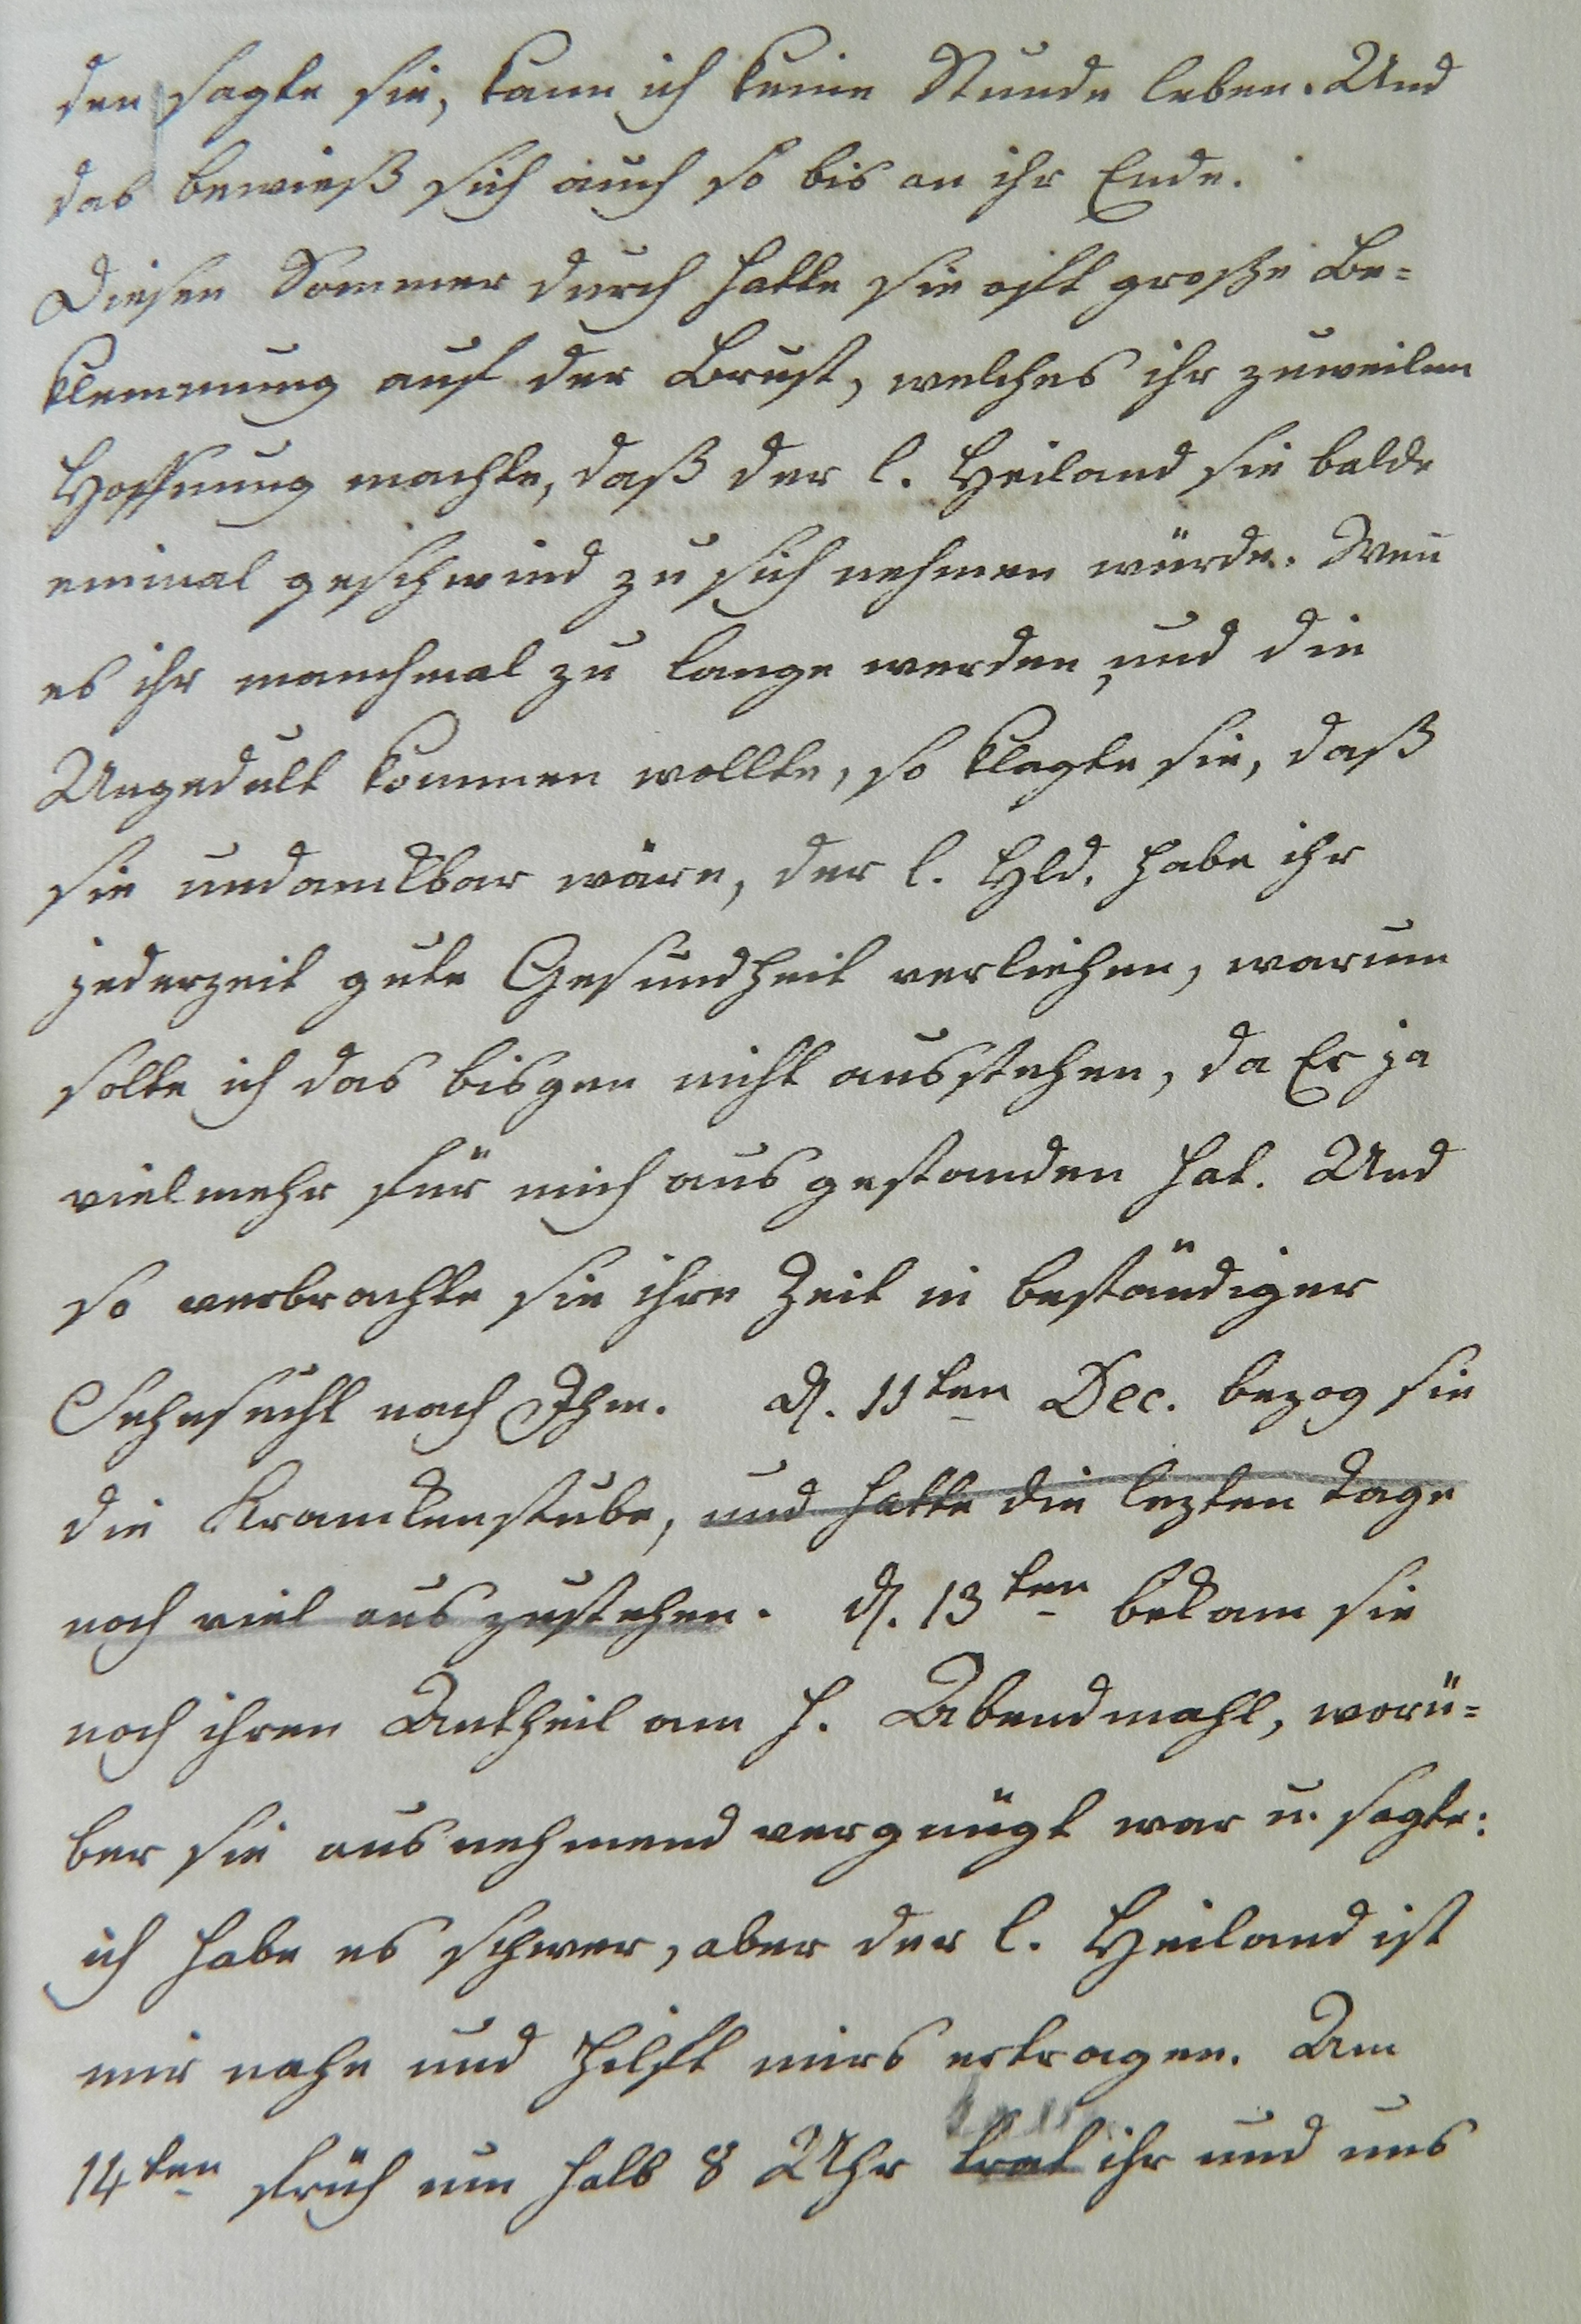 den sagte sie, kann ich keine Stunde leben. Und
das bewieß sich auch so bis an ihr Ende.
Diesen Sommer durch hatte sie oft große Be=
klemmung auf der Brust, welches ihr zuweilen
Hoffnung machte, daß der l. Heiland sie balde
einmal geschwind zu sich nehmen würde. Wen
es ihr manchmal zu lange werden, und die
Ungedult kommen wollte, so klagte sie, daß
sie undankbar wäre, der l. Hld. habe ihr
jederzeit gute Gesundheit verliehen, warum
solte ich das bisgen nicht ausstehen, da Er ja
vielmehr für mich ausgestanden hat. Und
so verbrachte sie ihre Zeit in beständiger
Sehnsucht nach Ihm. d. 11ten Dec. bezog sie
die Krankenstube, und hatte die lezten Tage
noch viel auszustehen. d. 13ten bekam sie
noch ihren Antheil am h. Abendmahl, worü=
ber sie ausnehmend vergnügt war u. sagte:
ich habe es schwer, aber der l. Heiland ist
mir nahe und hilft mirs ertragen. Am
14ten früh um halb 8 Uhr trat ihr und uns